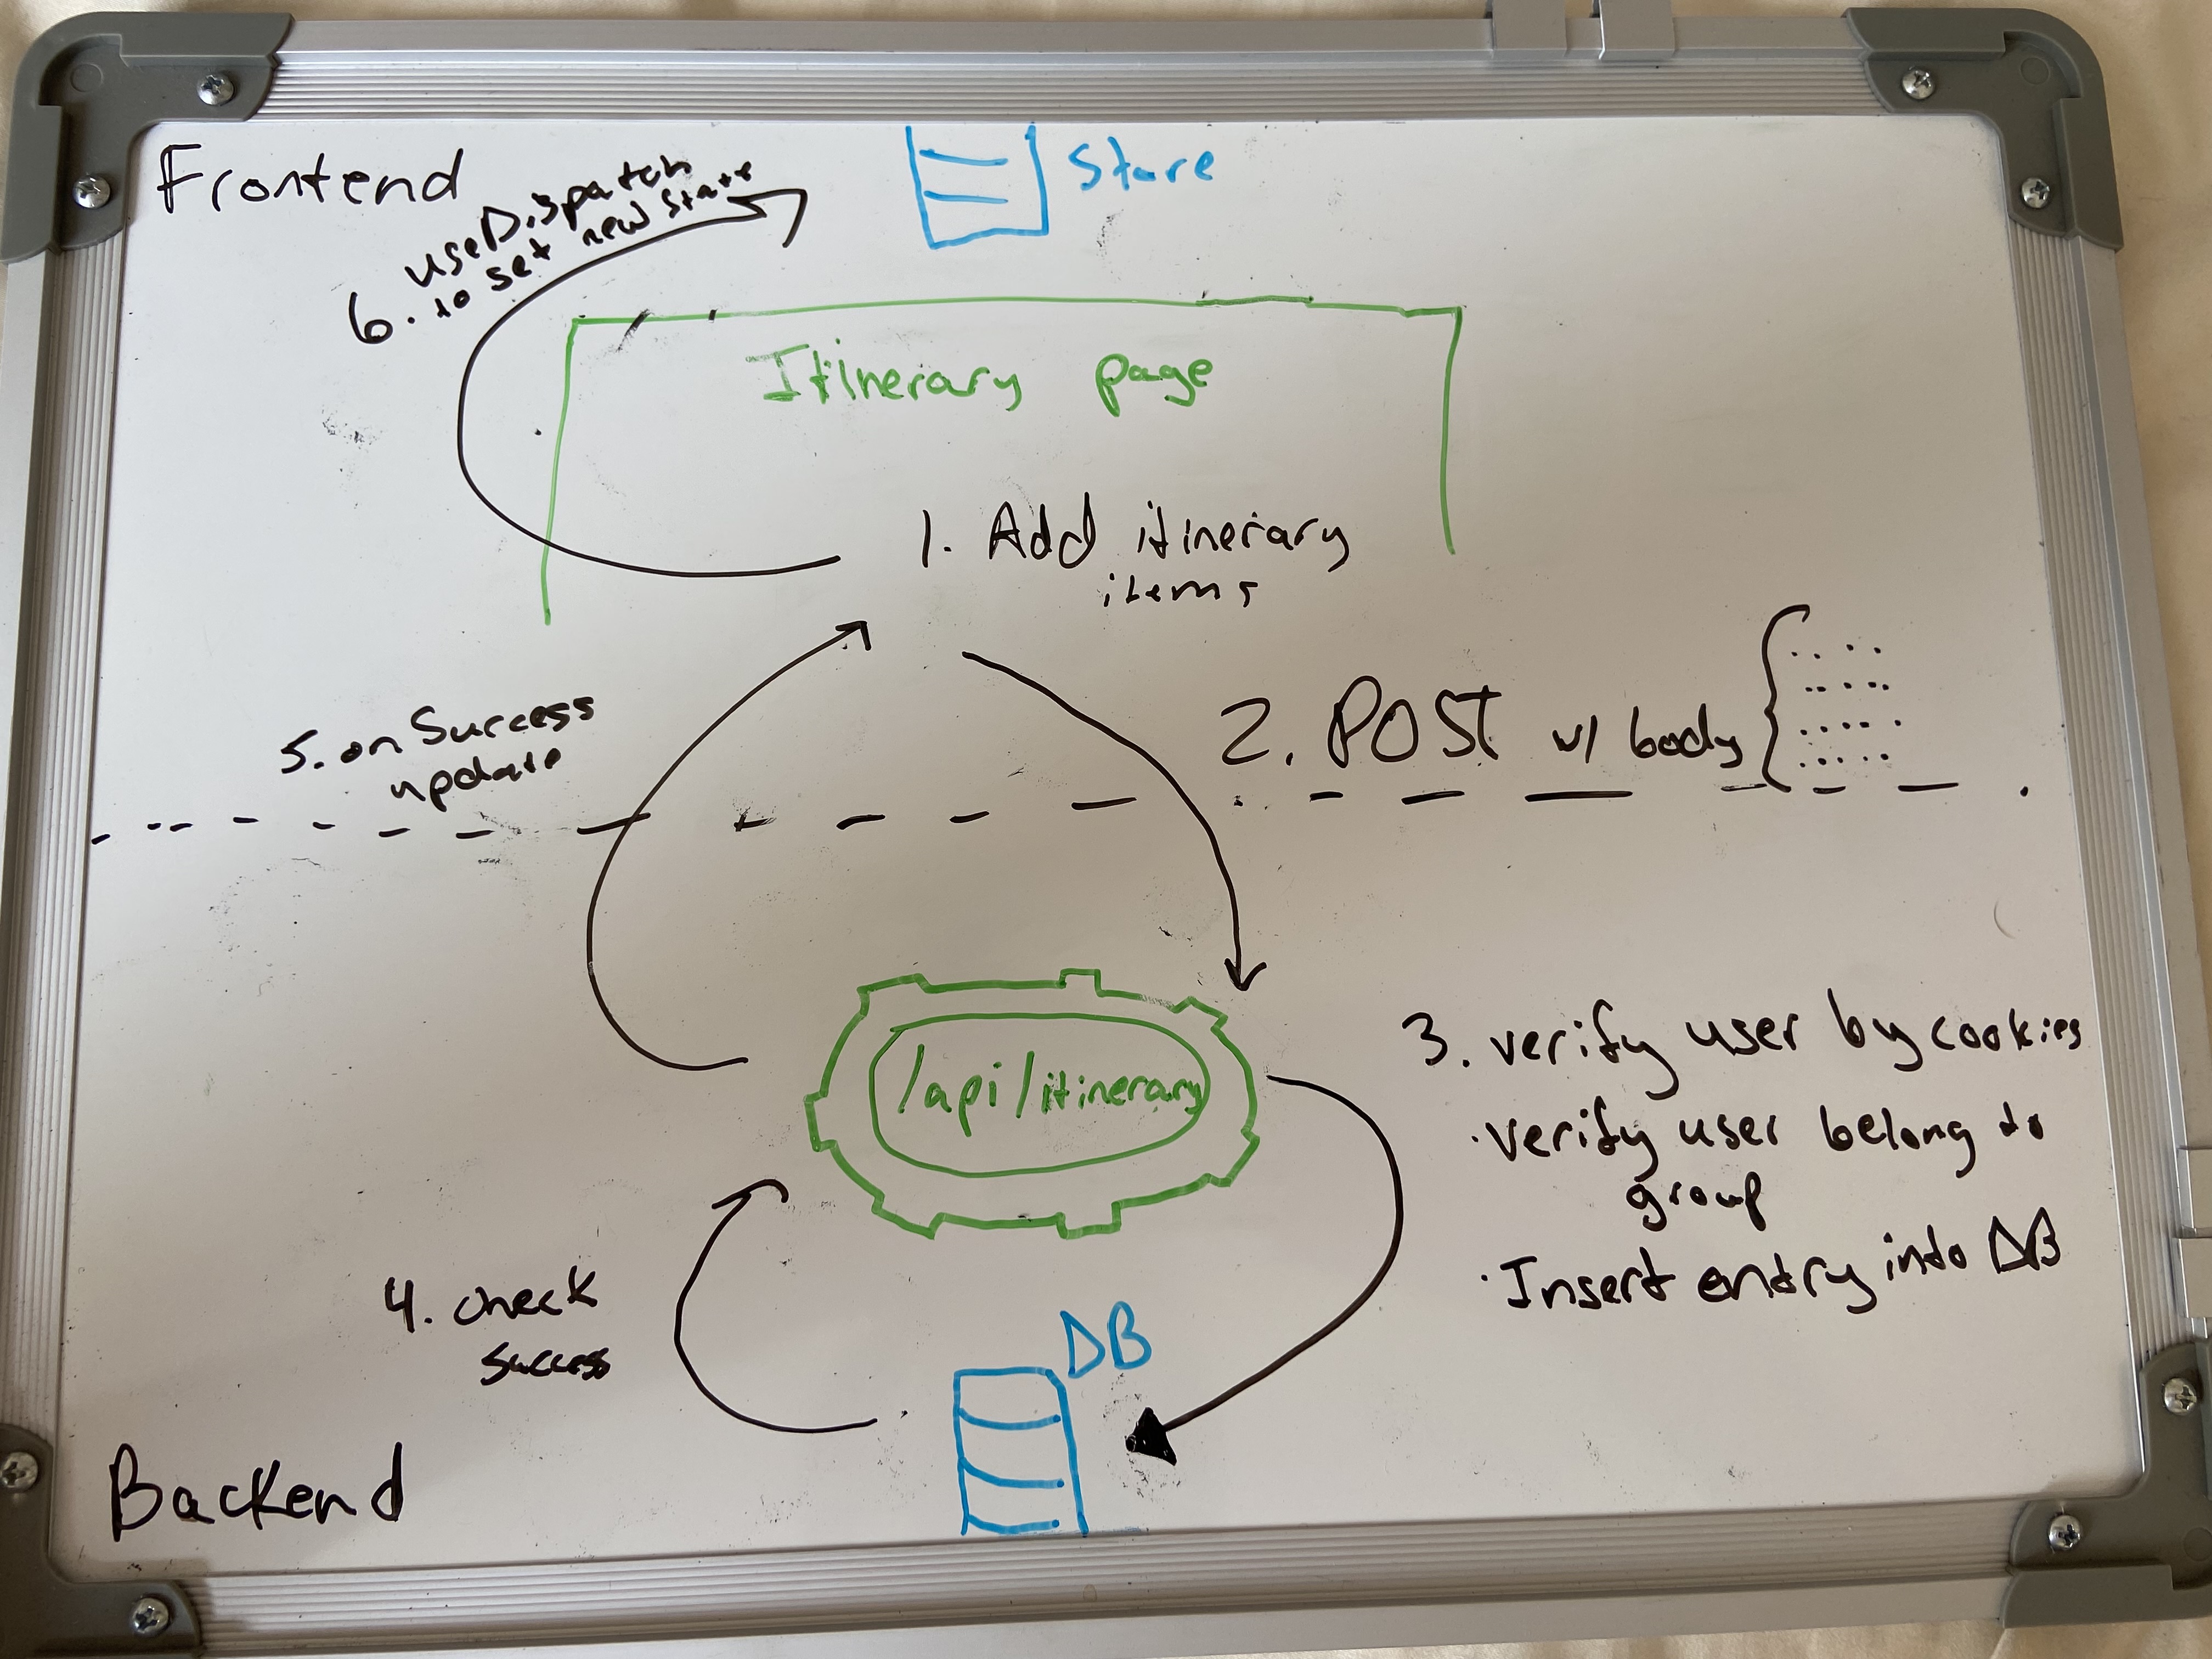 Frontend
Store
6. useDispatch
to set new state
Itinerary page
1. Add itinerary
items
2. POST w/ body {
5. on Success
update
/api/itinerary
3. verify user by cookies
· verify user belong to
group
· Insert entry into DB
4. check
success
DB
Backend